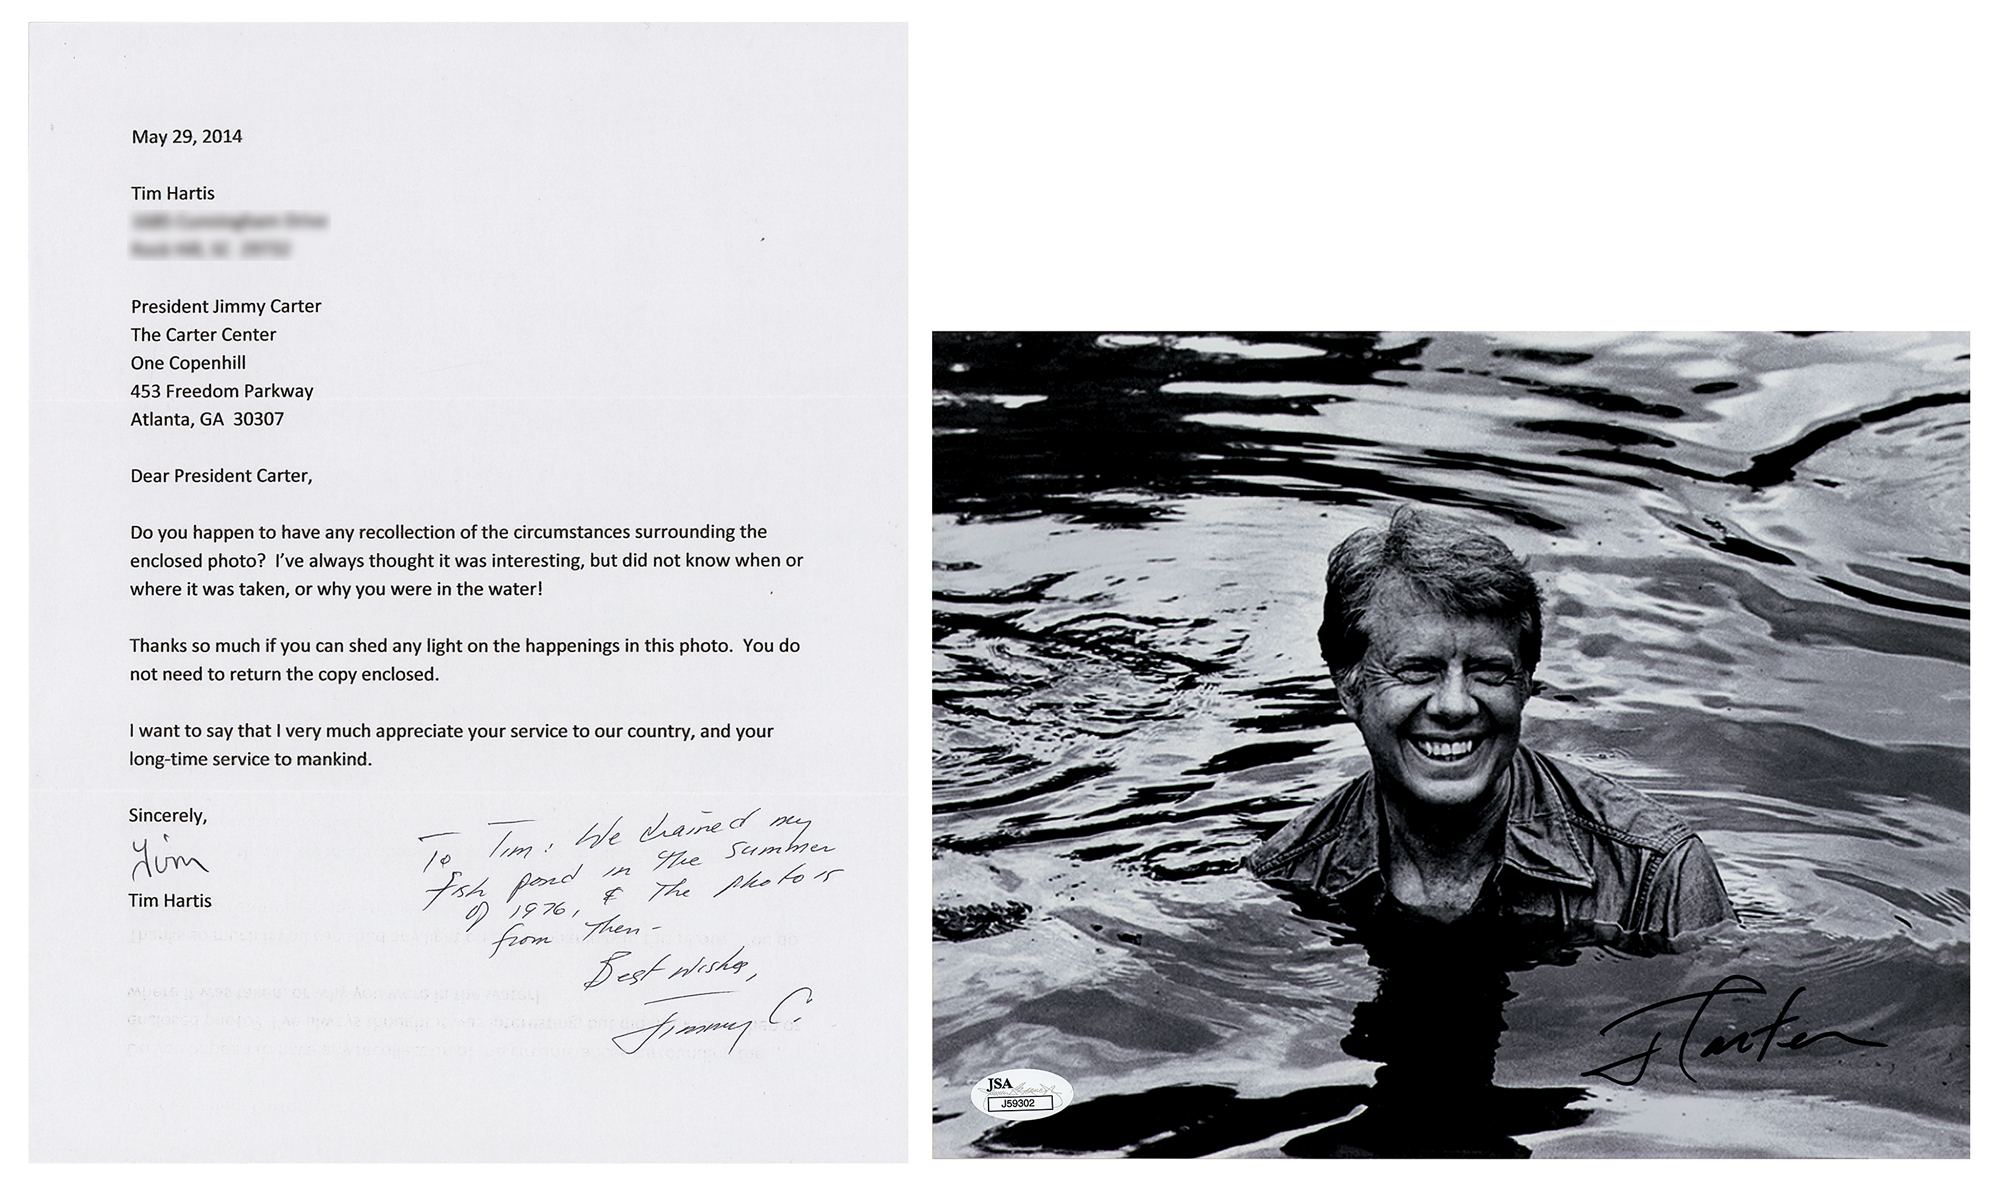 May 29, 2014
Tim Hartis
President Jimmy Carter
The Carter Center
One Copenhill
453 Freedom Parkway
Atlanta, GA  30307
Dear President Carter,
Do you happen to have any recollection of the circumstances surrounding the
enclosed photo?  I've always thought it was interesting, but did not know when or
where it was taken, or why you were in the water!
Thanks so much if you can shed any light on the happenings in this photo.  You do
not need to return the copy enclosed.
I want to say that I very much appreciate your service to our country, and your
long-time service to mankind.
Sincerely,
Tim
Tim Hartis
To Tim: We drained my
fish pond in the summer
of 1976, & the photo is
from then-
Best wishes,
Jimmy C.
J Carter
JSA
J59302